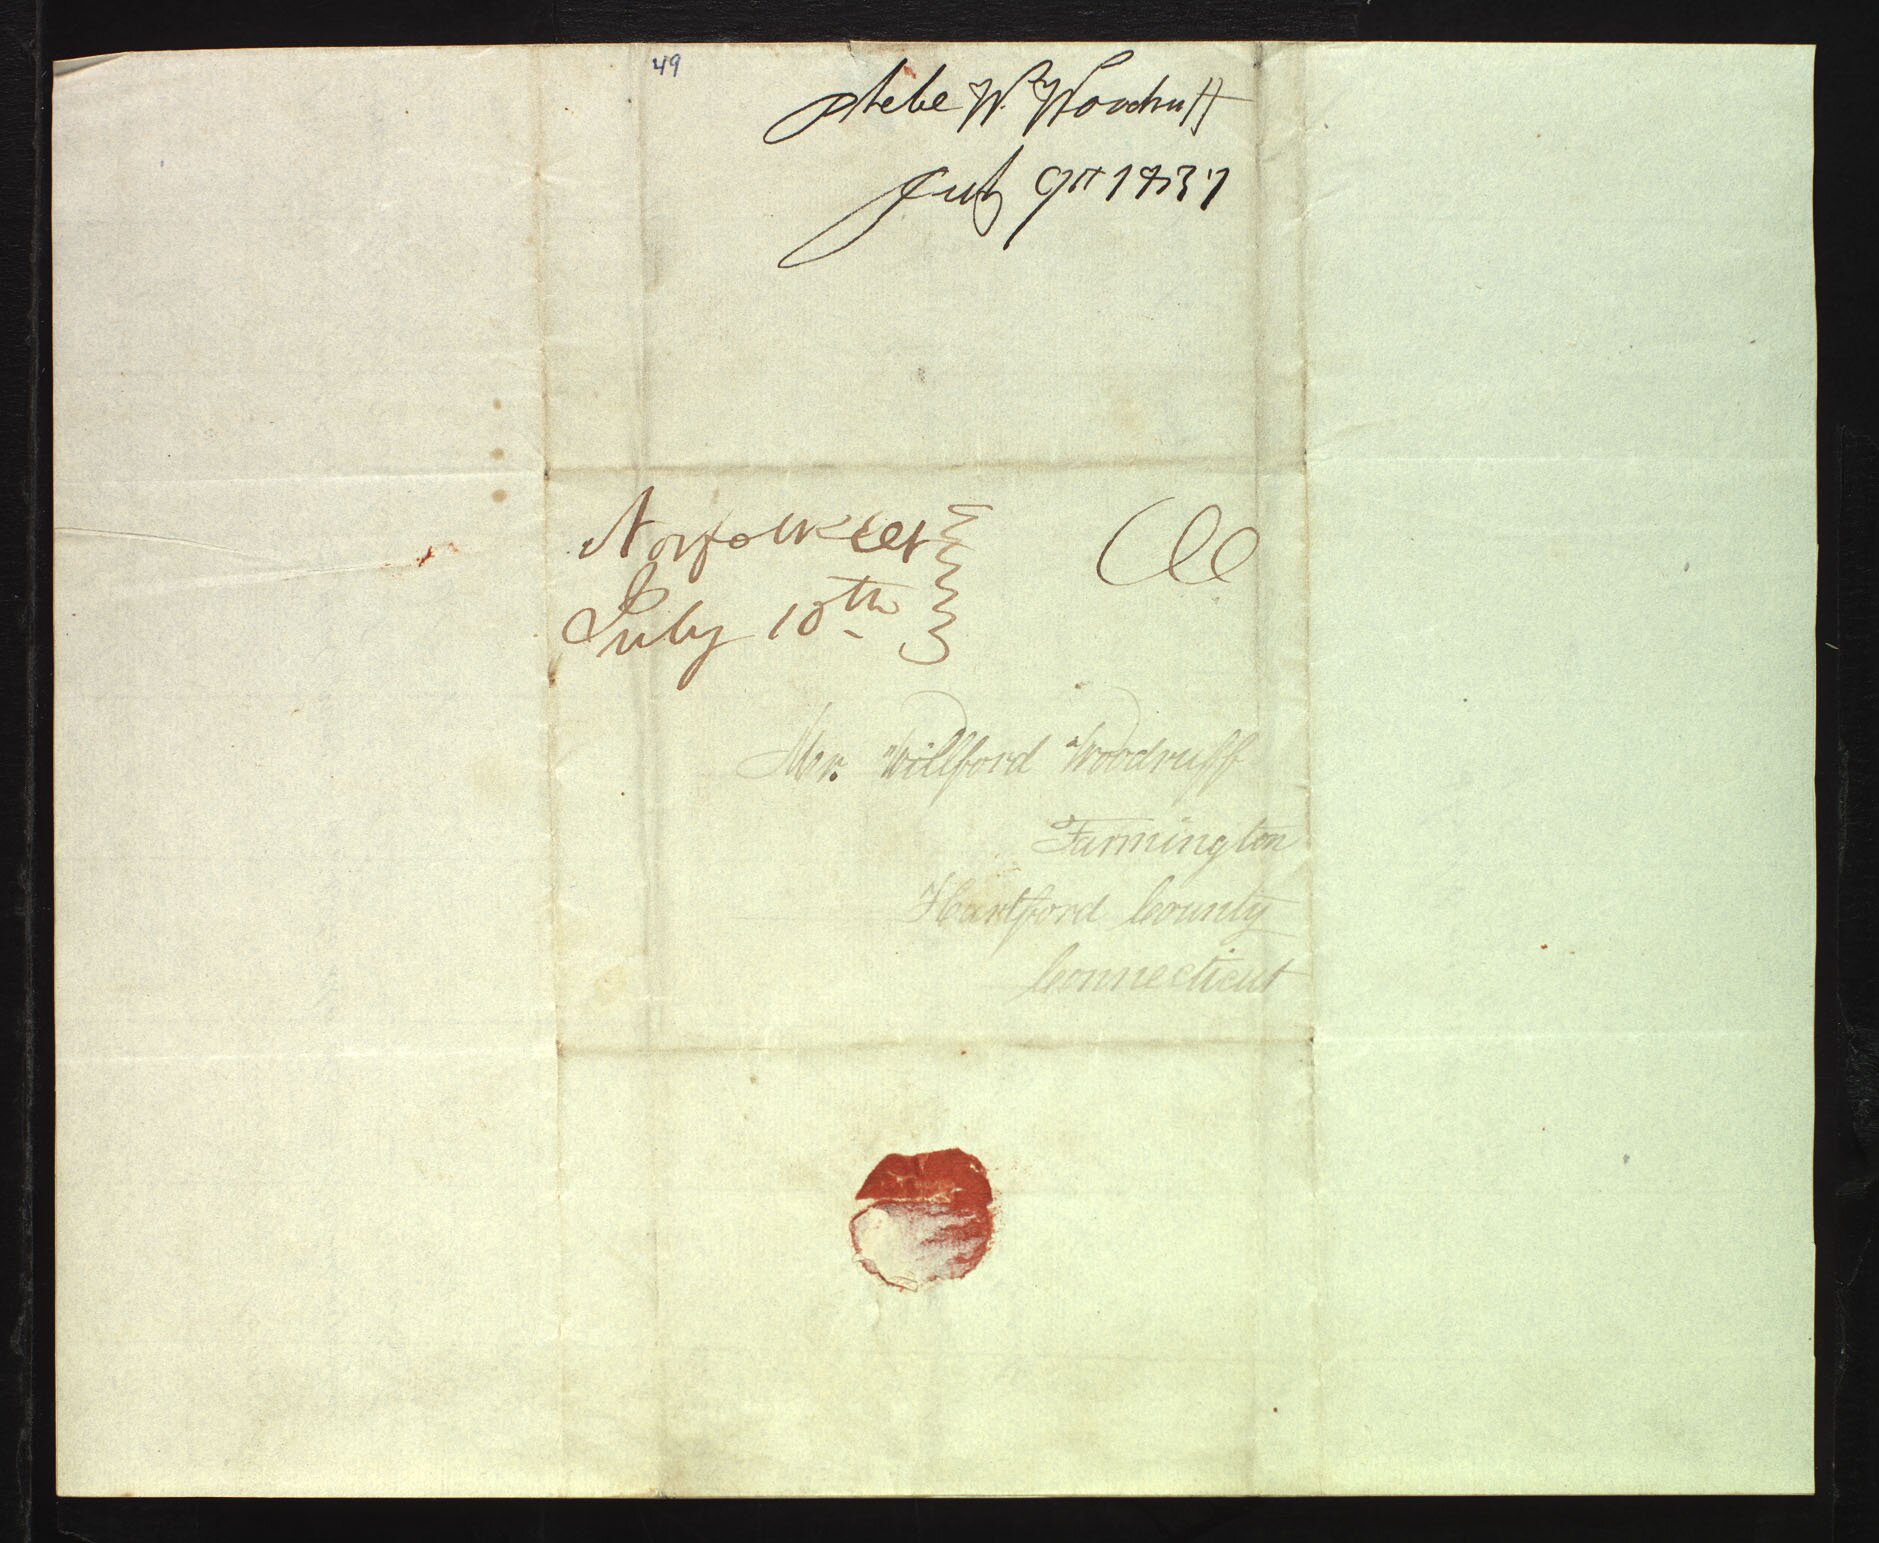 49
Phebe W. Woodruff
July 9th 1837
Norfolk Ct
July 10th
Mr. Willford Woodruff
Farmington
Hartford County
Connecticut